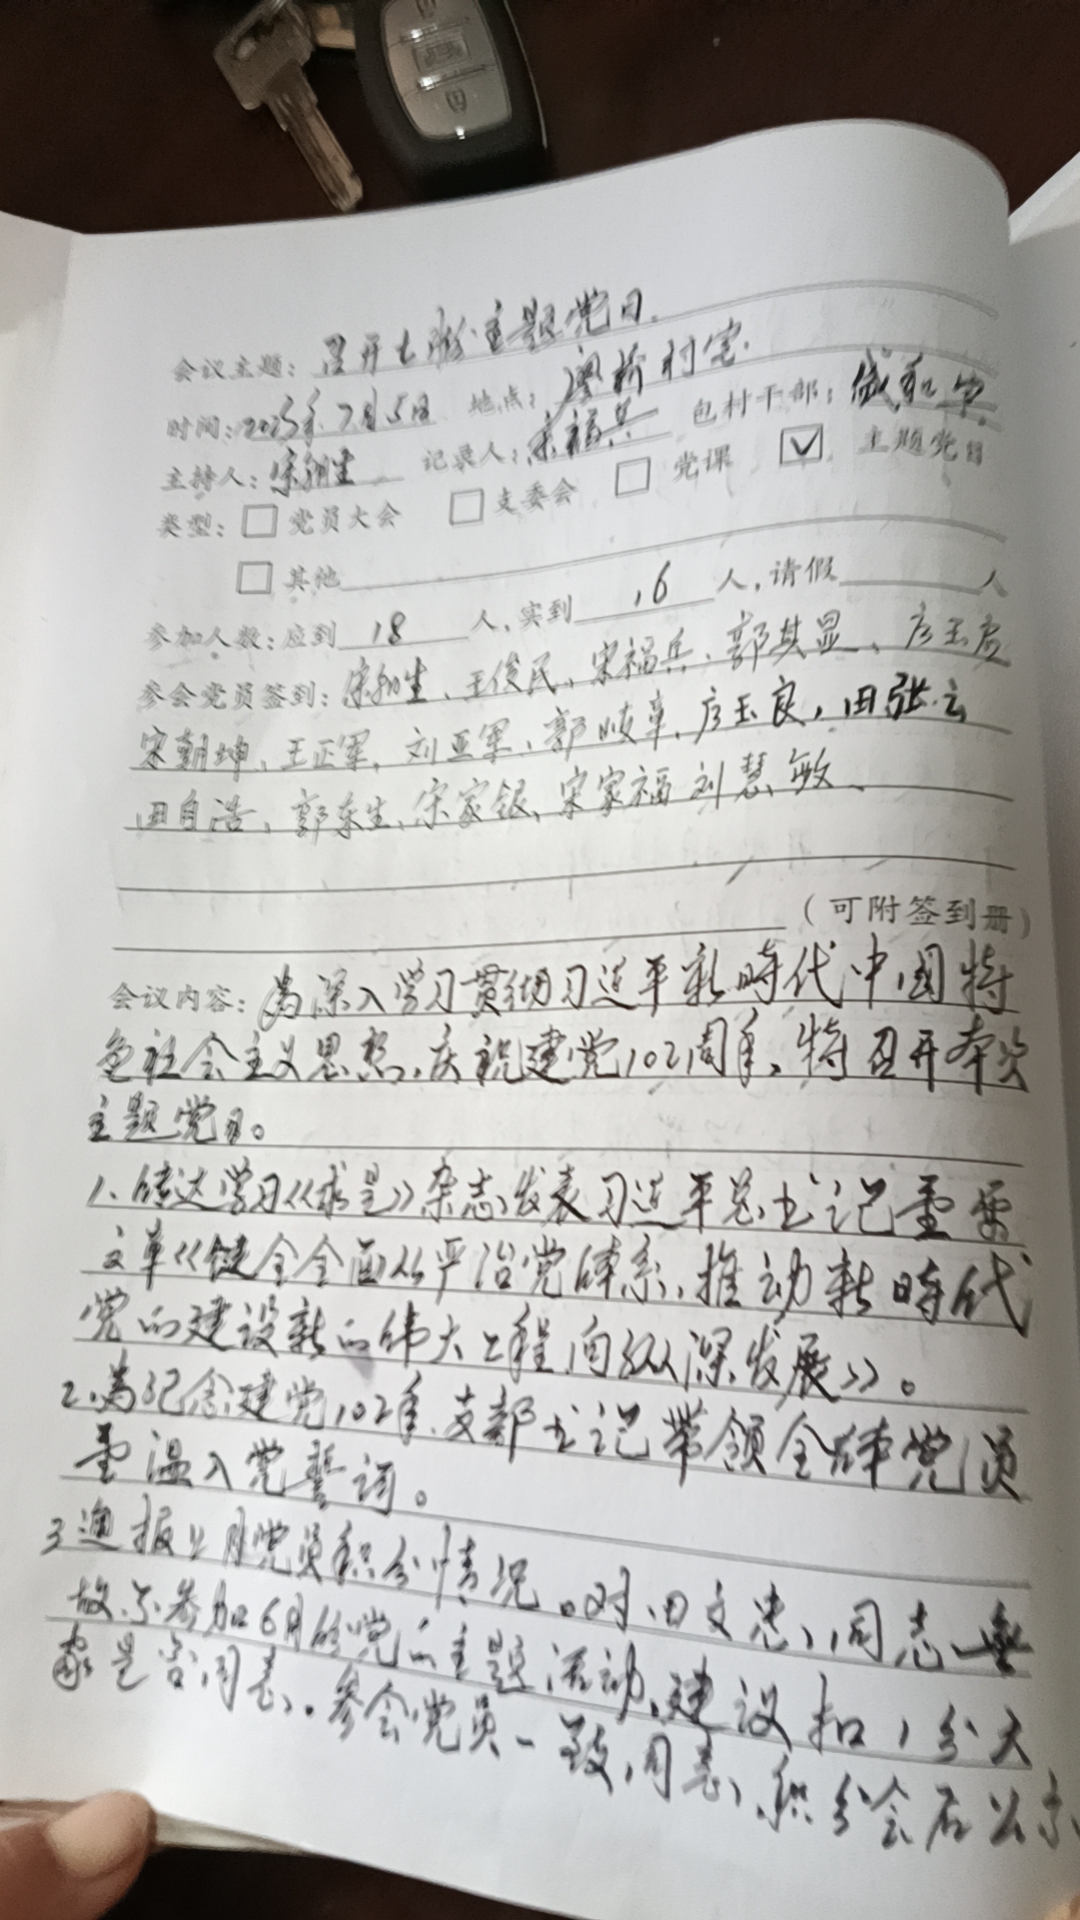 会议主题：召开七月份主题党日.
时间：2023年7月5日 地点：桥村室. 包村干部：
主持人：宋 记录人：宋福兵
类型：□党员大会 □支委会 □党课 ☑主题党日
□其他
参加人数：应到 18 人，实到 16 人，请假 人
参会党员签到：宋生、王俊民、宋福兵、郭其显、彦玉
宋朝坤、王正军、刘亚军、郭岐章、彦玉良，田张云
田自浩、郭东生、宋家银、宋家福 刘慧敏、
（可附签到册）
会议内容：為深入学习贯彻习近平新時代中国特
色社会主义思想，庆祝建党102周年，特召开本次
主题党日。
1、传达学习《求是》杂志发表习近平总书记重要
文章《健全全面从严治党体系，推动新時代
党的建设新的伟大工程向纵深发展》。
2、為纪念建党102年，支部书记带领全体党员
重温入党誓词。
3通报上月党员积分情况。对田文忠同志無
故不参加6月份党的主题活动，建议扣1分大
家是否同意。参会党员一致同意，积分会后公示